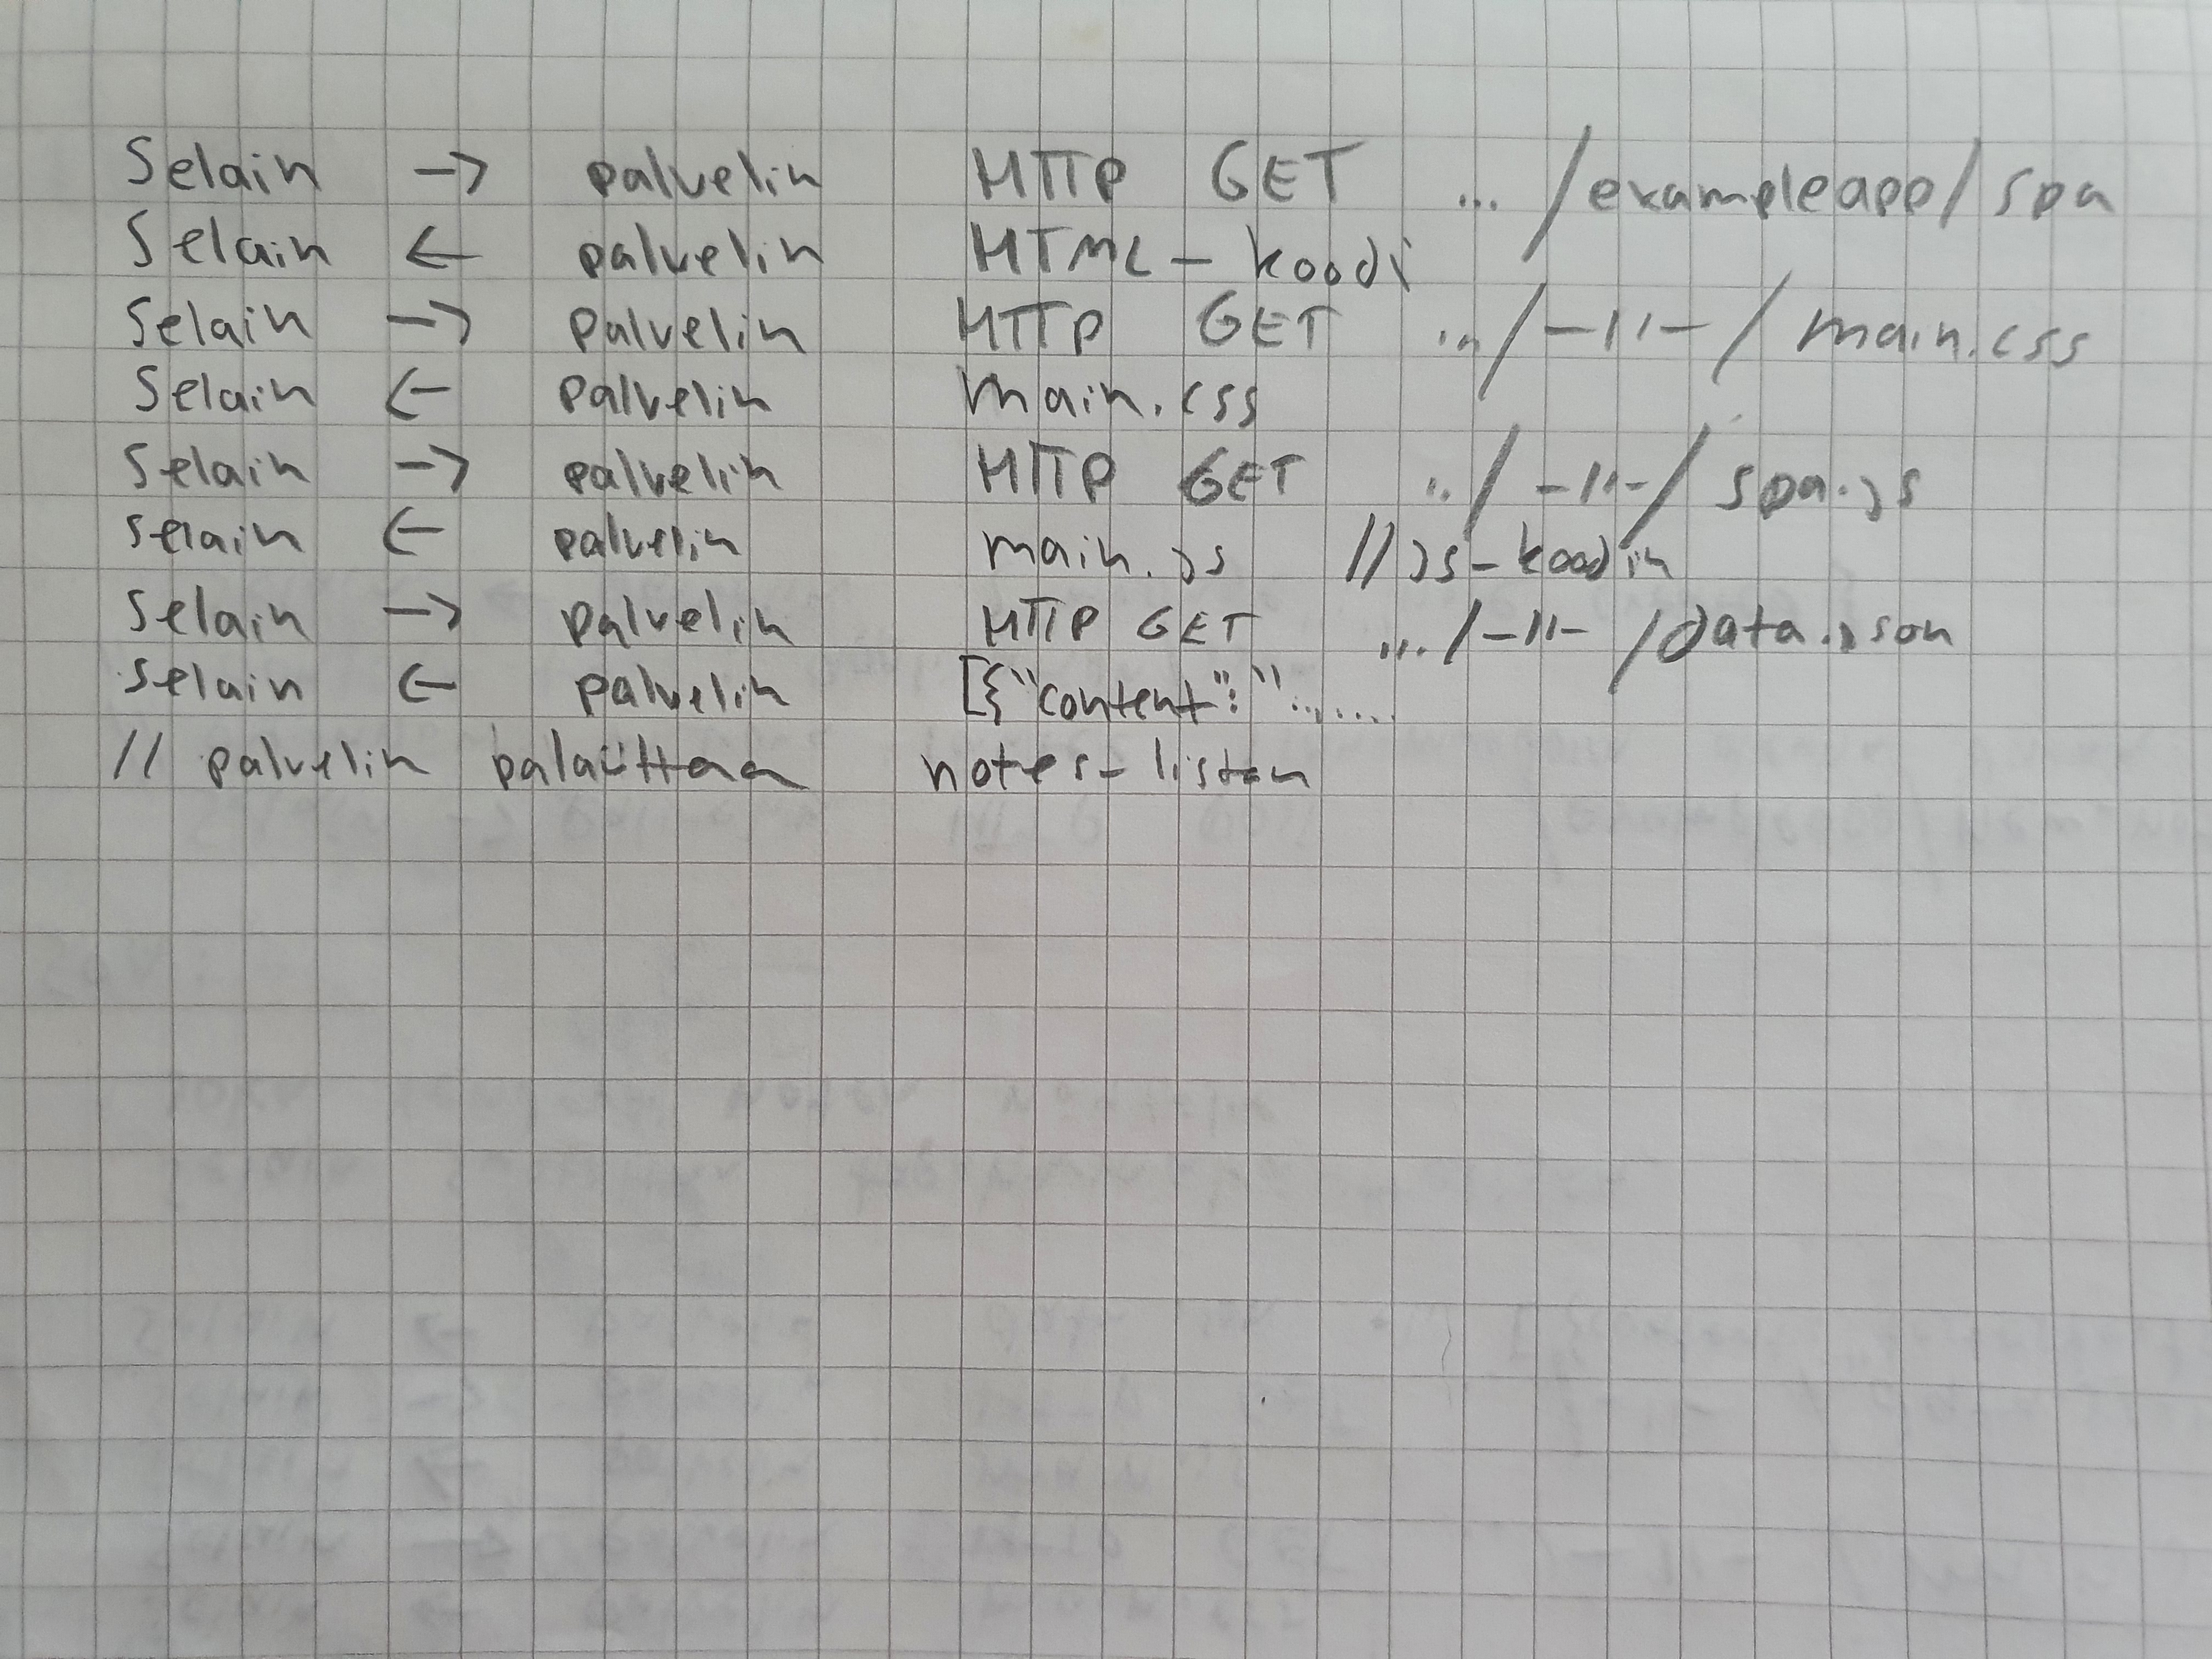 Selain -> palvelin HTTP GET ... /exampleapp/spa
Selain <- palvelin HTML-koodi
Selain -> Palvelin HTTP GET .../-11-/main.css
Selain <- palvelin main.css
Selain -> palvelin HTTP GET ../-11-/spa.js
selain <- palvelin main.js //js-koodin
Selain -> palvelin HTTP GET .../-11-/data.json
selain <- palvelin [{"content":".......
// palvelin palauttaa notes-listan